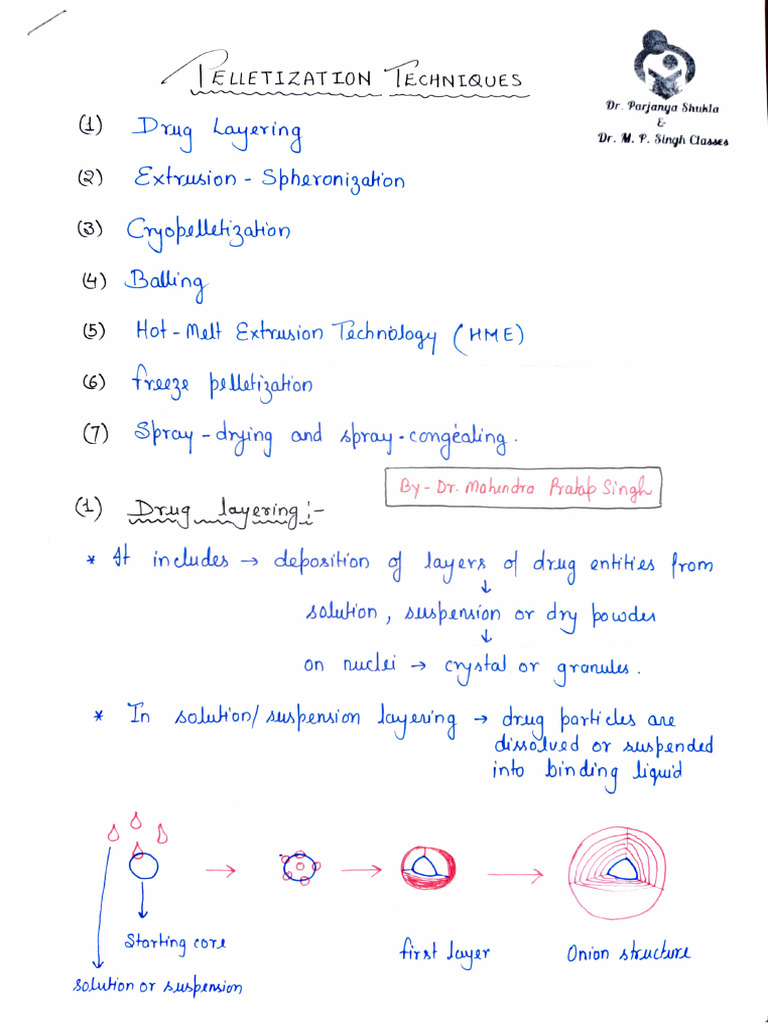 PELLETIZATION TECHNIQUES
Dr. Parjanya Shukla
&
Dr. M. P. Singh Classes
(1) Drug Layering
(2) Extrusion - Spheronization
(3) Cryopelletization
(4) Balling
(5) Hot-Melt Extrusion Technology (HME)
(6) freeze pelletization
(7) Spray-drying and spray-congealing.
By- Dr. Mahendra Pratap Singh
(1) Drug layering:-
* It includes → deposition of layers of drug entities from
↓
solution, suspension or dry powder
↓
on nuclei → crystal or granules.
* In solution/suspension layering → drug particles are
dissolved or suspended
into binding liquid
Starting core
first layer
Onion structure
solution or suspension